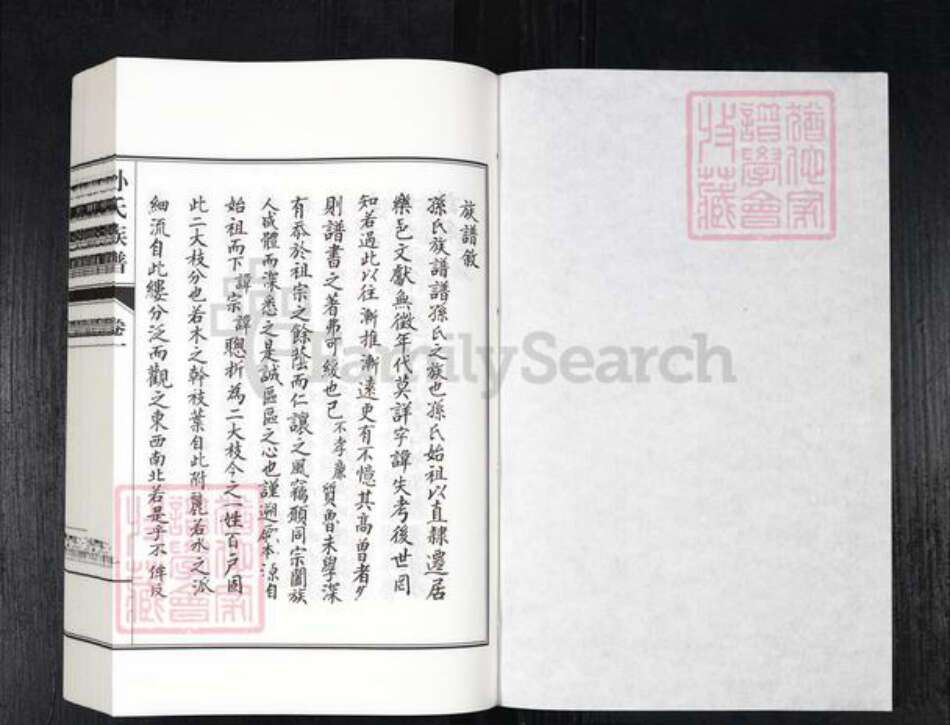 族譜敘
孫氏族譜譜孫氏之族也孫氏始祖以直隸遷居
樂邑文獻無徵年代莫詳字諱失考後世罔
知若過此以往漸推漸遠更有不憶其高曾者夕
則譜書之著弗可緩也已不孝廉質魯未學深
有忝於祖宗之餘蔭而仁讓之風竊願同宗闔族
人咸體而深悉之是誠區區之心也謹遡原本源自
始祖而下諱宗諱聰析為二大枝今之一姓百戶固
此二大枝分也若木之幹枝葉自此附麗若水之派
細流自此縷分泛而觀之東西南北若是乎不
孙氏族譜
卷一
FamilySearch
譜學會
收藏